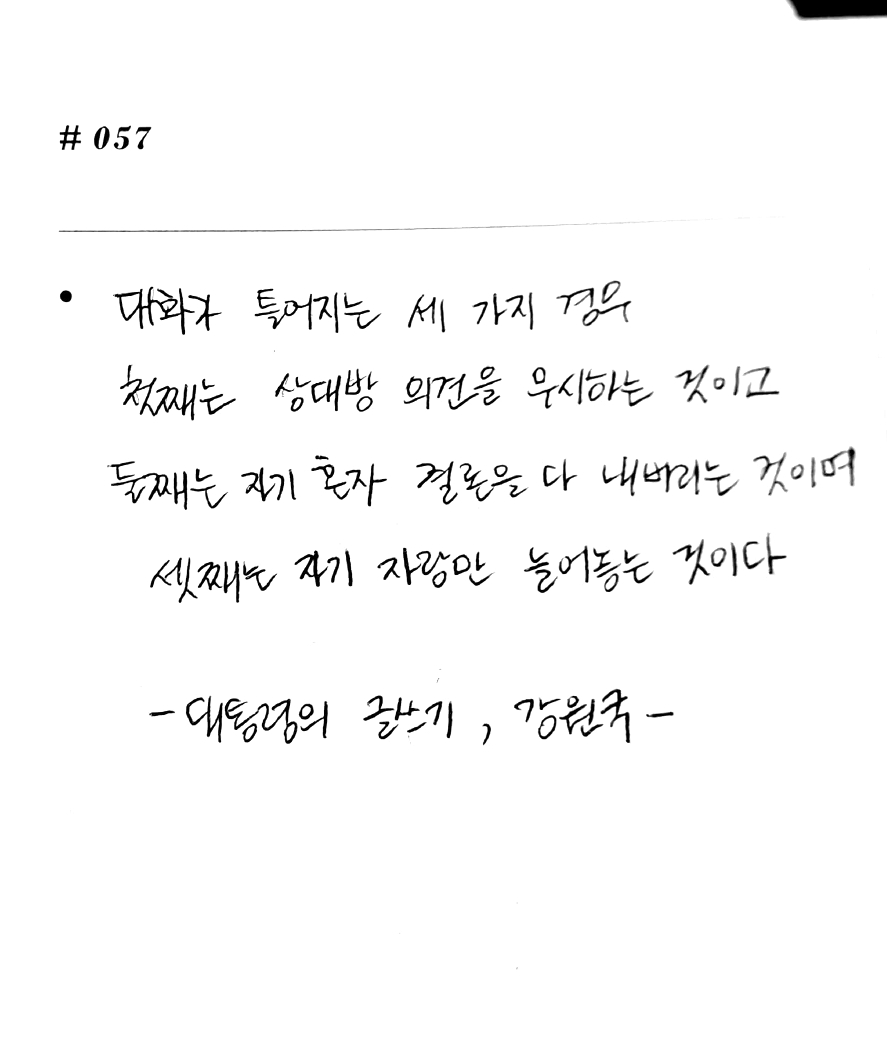 # 057
• 대화가 틀어지는 세 가지 경우
첫째는 상대방 의견을 무시하는 것이고
둘째는 자기 혼자 결론을 다 내버리는 것이며
셋째는 자기 자랑만 늘어놓는 것이다
- 대통령의 글쓰기, 강원국 -